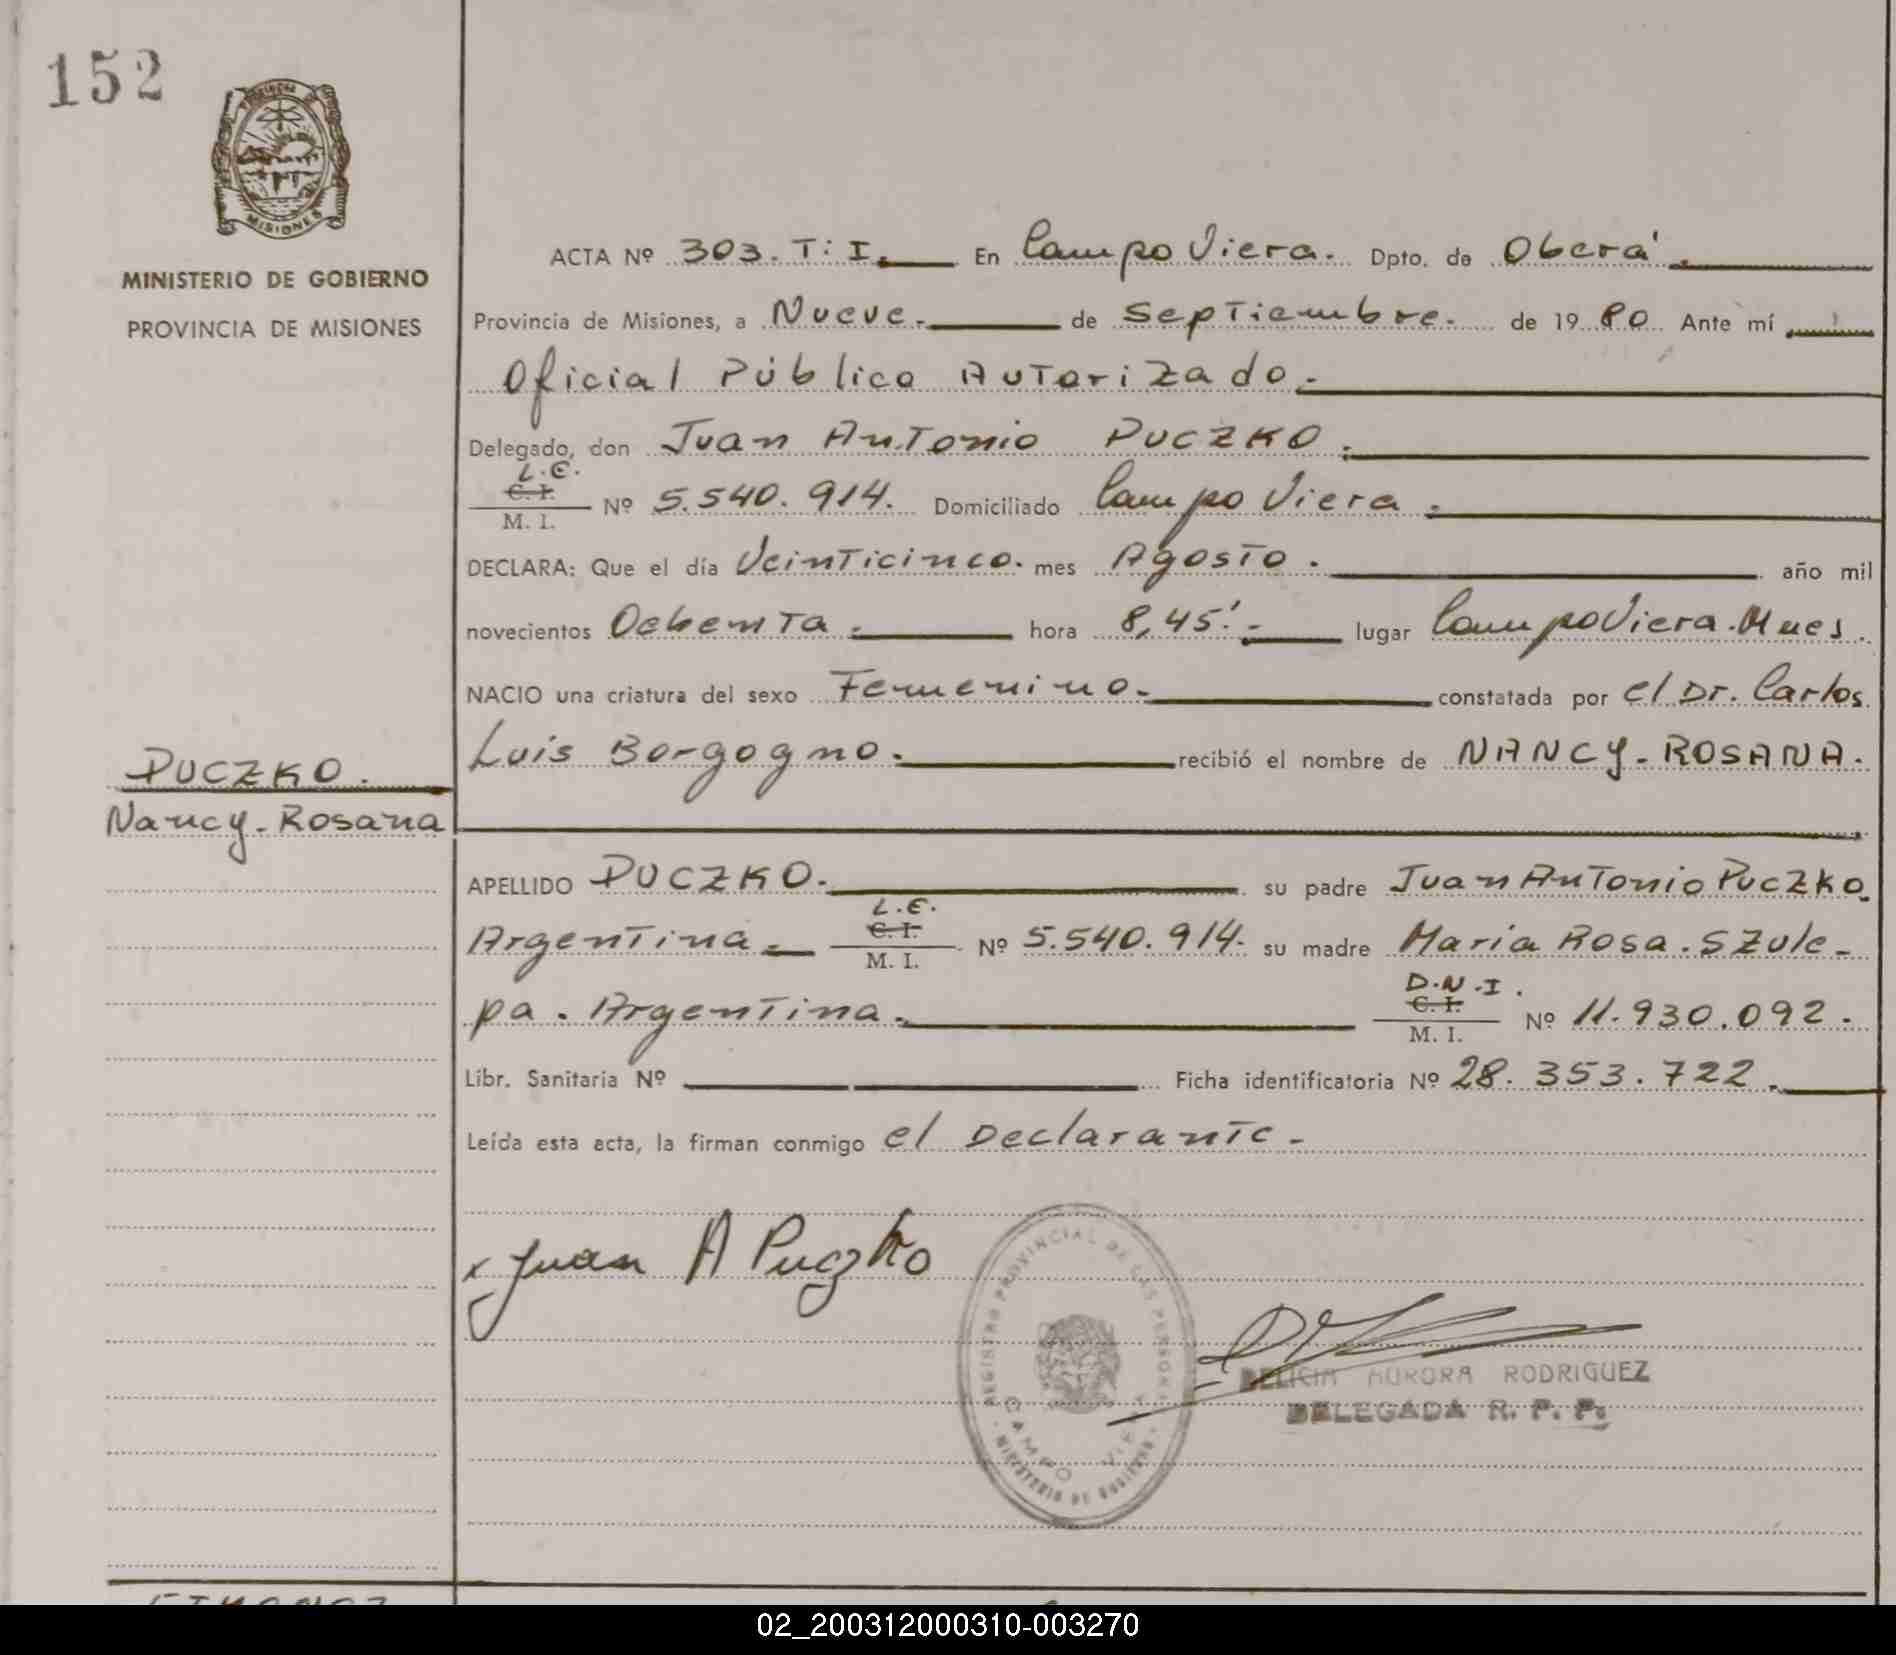 152
PROVINCIA DE
MISIONES
MINISTERIO DE GOBIERNO
PROVINCIA DE MISIONES
ACTA Nº 303. T: I. En Campo Viera. Dpto. de Oberá.
Provincia de Misiones, a Nueve. de Septiembre. de 1980 Ante mí
Oficial Público Autorizado.
Delegado, don Juan Antonio PUCZKO.
L.E.
C. I.
M. I. Nº 5.540.914. Domiciliado Campo Viera.
DECLARA: Que el día Veinticinco. mes Agosto. año mil
novecientos Ochenta. hora 8,45'.- lugar Campo Viera. Mnes.
NACIO una criatura del sexo Femenino. constatada por el Dr. Carlos
Luis Borgogno. recibió el nombre de NANCY-ROSANA.
PUCZKO.
Nancy-Rosana
APELLIDO PUCZKO. su padre Juan Antonio Puczko.
L.E.
Argentina. C. I.
M. I. Nº 5.540.914. su madre Maria Rosa. Szule-
D.N.I.
pa. Argentina. C. I.
M. I. Nº 11.930.092.
Libr. Sanitaria Nº Ficha identificatoria Nº 28.353.722.
Leída esta acta, la firman conmigo el Declarante-
x Juan A Puczko
REGISTRO PROVINCIAL DE LAS PERSONAS
CAMPO VIERA
MINISTERIO DE GOBIERNO
DELICIA AURORA RODRIGUEZ
DELEGADA R. P. P.
02_200312000310-003270